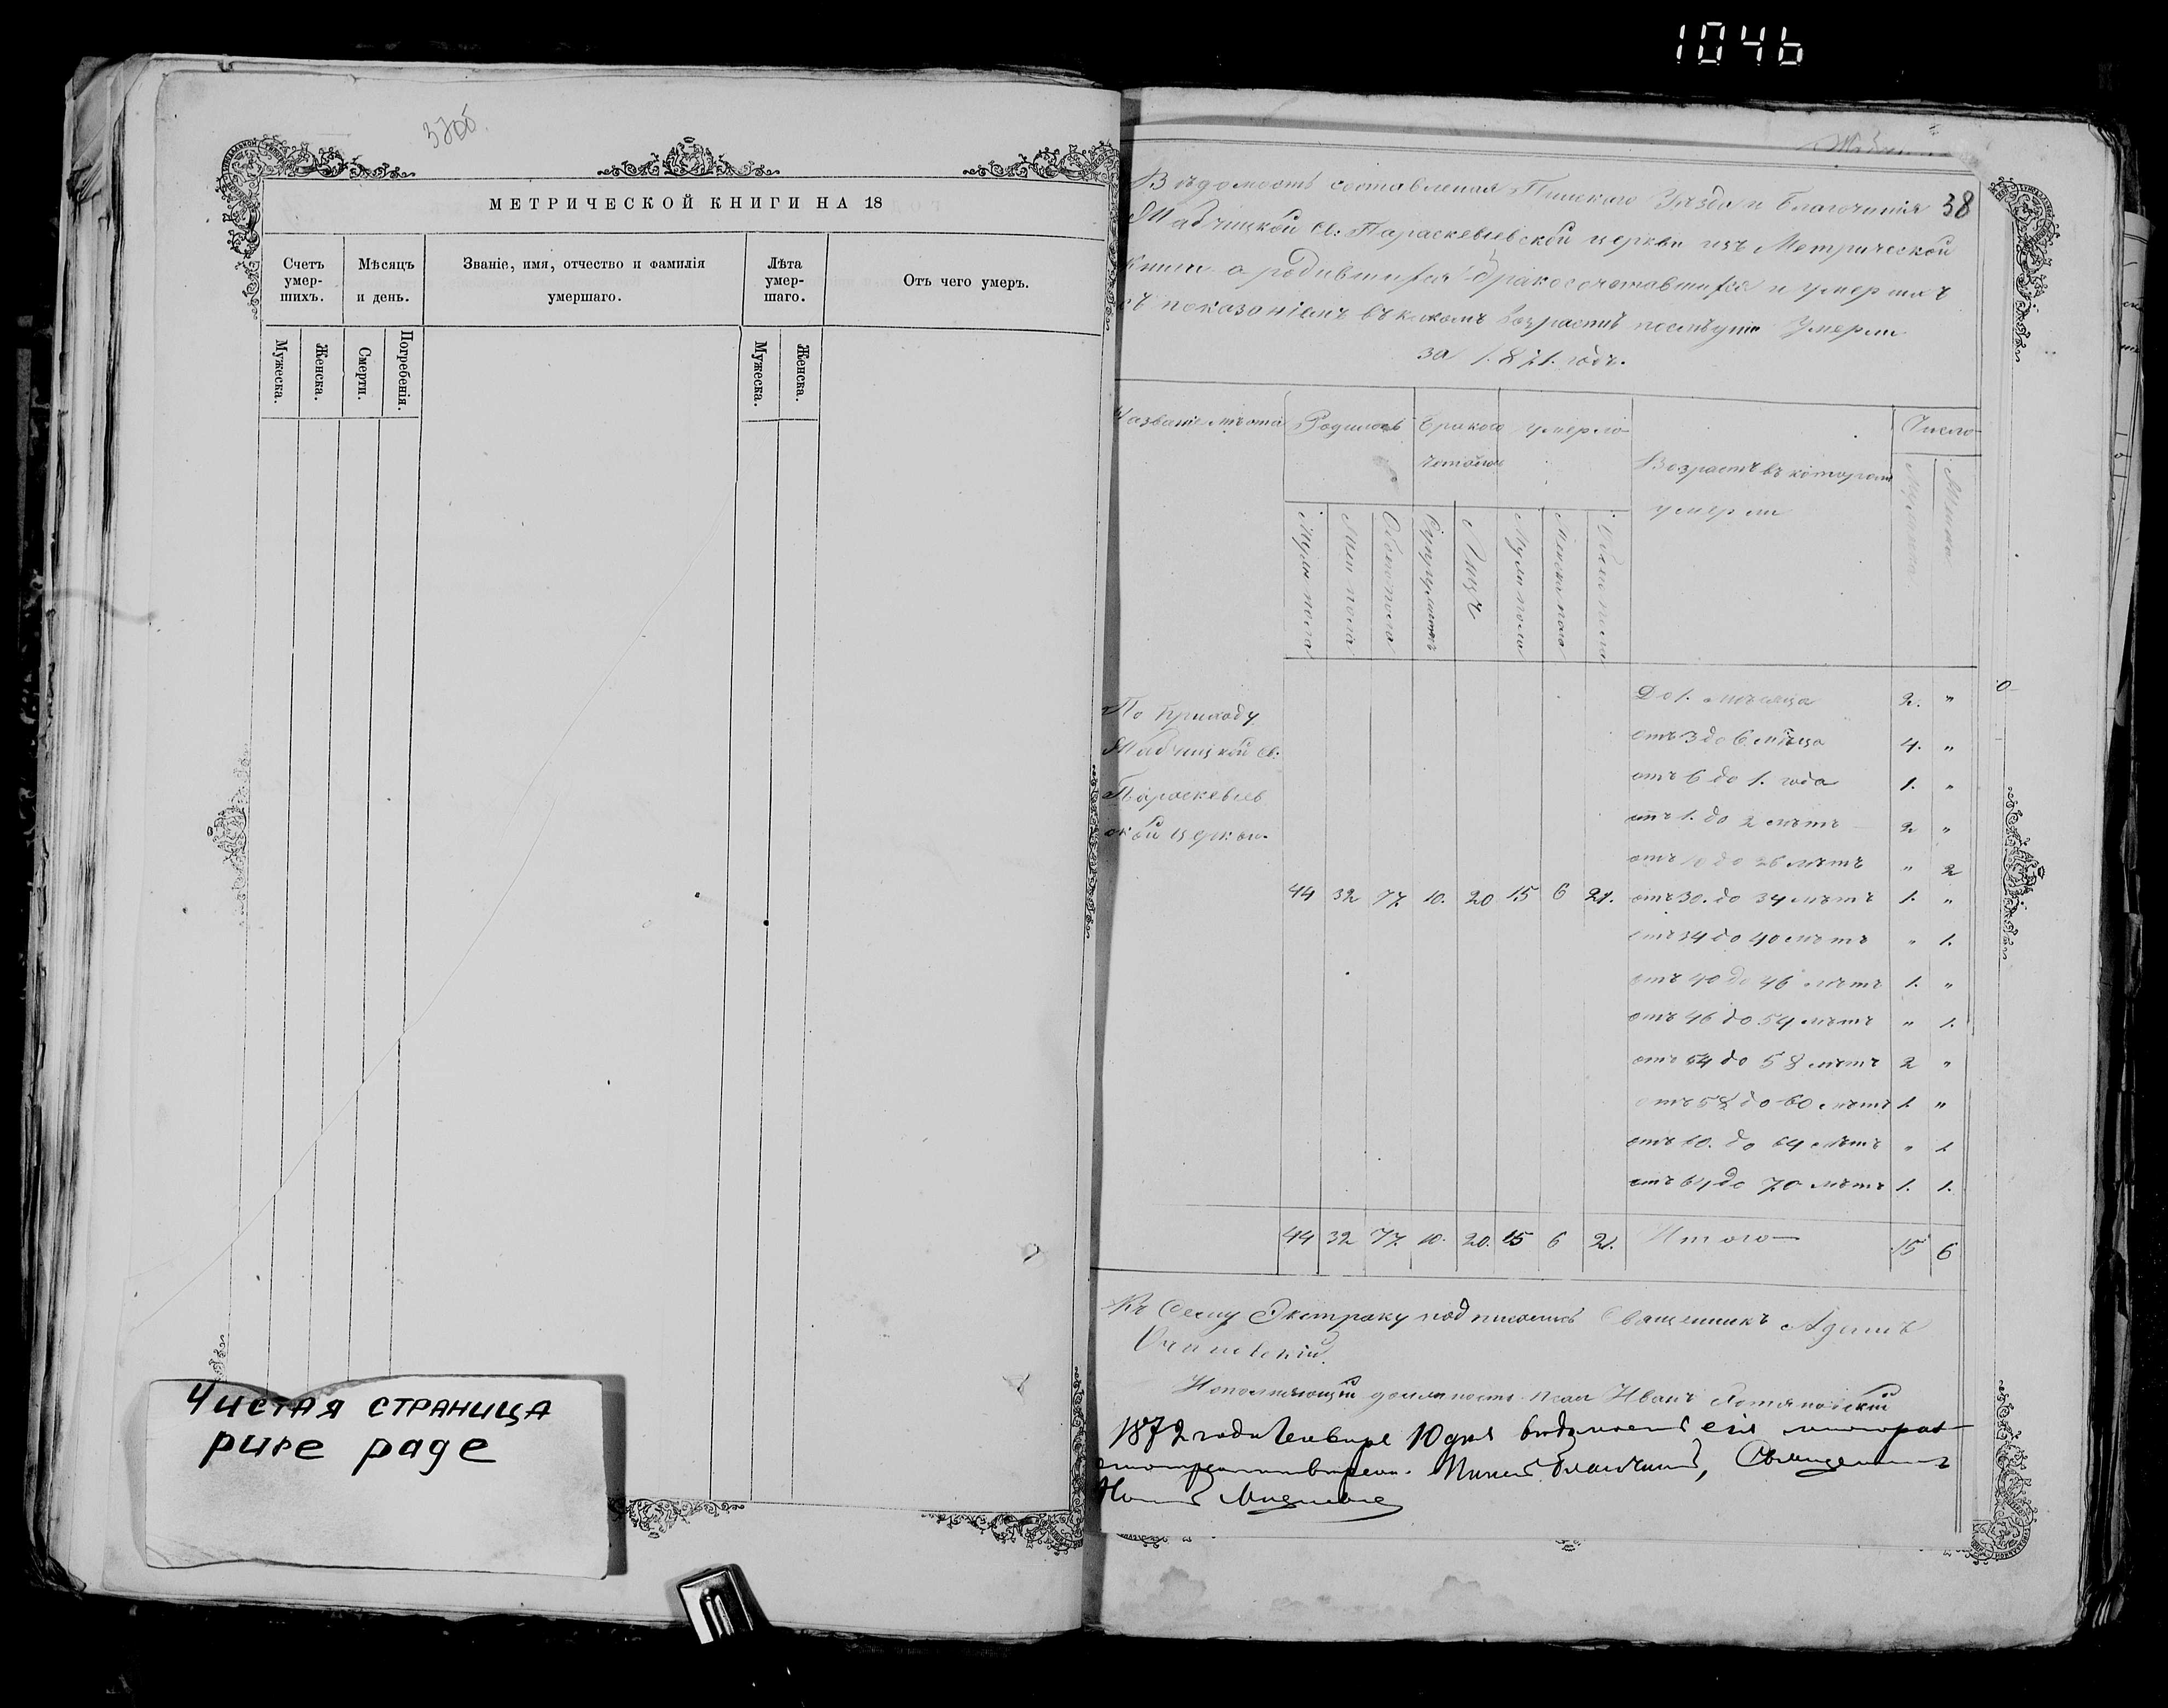 1046
37об
МЕТРИЧЕСКОЙ КНИГИ НА 18
Счетъ умер-шихъ.
Мѣсяцъ и день.
Званіе, имя, отчество и фамилія умершаго.
Лѣта умер-шаго.
Отъ чего умеръ.
Мужеска.
Женска.
Смерти.
Погребенія.
Мужеска.
Женска.
Чистая страница
pure page
38
Вѣдомость составленая Пинского Уѣзда и благочинія
Мабчицкой св: Параскевіевской церкви изъ Метрической
книги о родившихся бракосочетавшихся и умершихъ
съ показаніемъ въ какомъ возрастѣ Умерли
за 1871. годъ.
Названіе мѣста
Родилось
Бракосо четалось
умерло
Возрастъ въ которомъ умерли
Число
Муж пола
Жен пола
Обоего пола
Супружествъ
Лицъ
Муж пола
Женска пола
Обоего пола
По приходу
Мабчицкой св:
Параскевіев
ской церкви.
До 1. мѣсяца 2. „
отъ 3 до 6 мѣсяцо 4. „
отъ 6 до 1. года 1. „
отъ 1. до 2 лѣтъ 2 „
отъ 10 до 26 лѣтъ „ 2
44 32 77. 10. 20 15 6 21. отъ 30. до 34 лѣтъ 1. „
отъ 34 до 40 лѣтъ „ 1.
отъ 40 до 46 лѣтъ 1. „
отъ 46 до 54 лѣтъ „ 1.
отъ 54 до 58 лѣтъ 2 „
отъ 58 до 60 лѣтъ 1. „
отъ 60. до 64 лѣтъ „ 1
отъ 64 до 70 лѣтъ 1. 1.
44 32 77. 10. 20. 15 6 21. Итого 15 6
Къ Сему Экстраку подписались Священникъ Адамъ
Исполняющій должность псал Иванъ
1872 года Генваря 10 дня вѣдомость сія
Священникъ